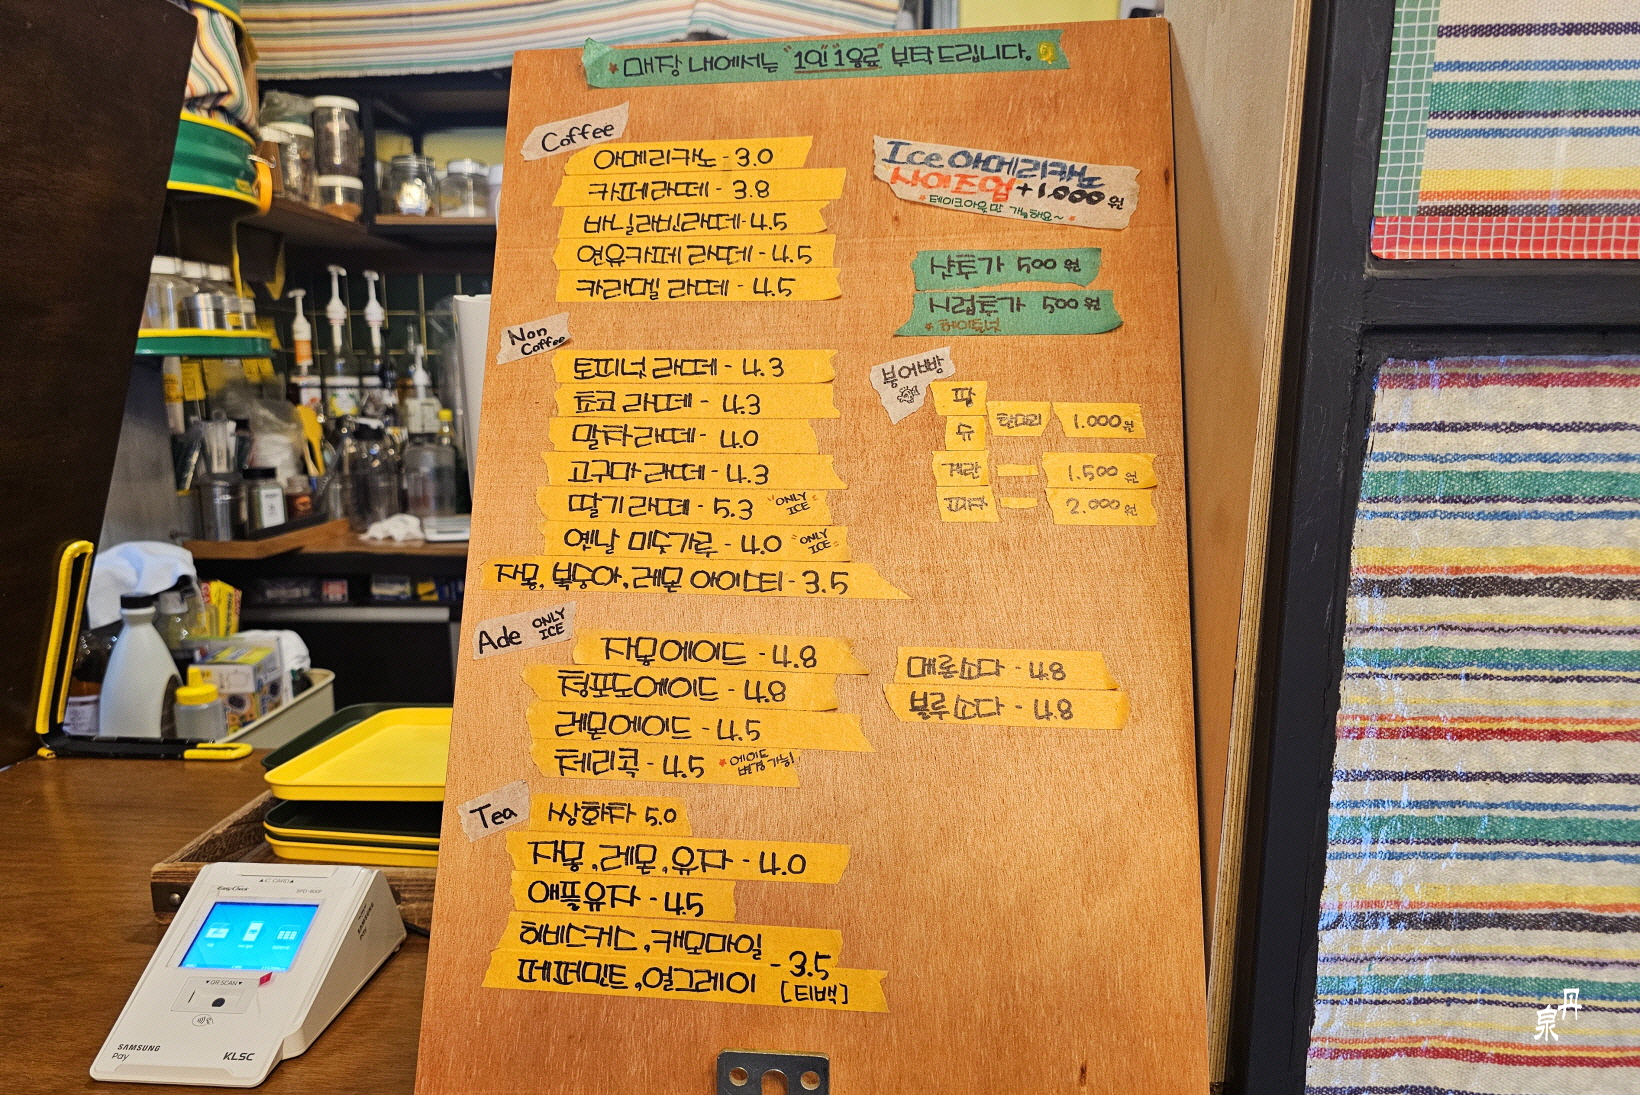 매장 내에서는 "1인 1음료" 부탁드립니다.
Coffee
아메리카노 - 3.0
카페라떼 - 3.8
바닐라빈라떼 - 4.5
연유카페라떼 - 4.5
카라멜 라떼 - 4.5
Ice 아메리카노
사이즈업 +1.000원
테이크아웃만 가능해요~
샷추가 500원
시럽추가 500원
헤이즐넛
Non
Coffee
토피넛 라떼 - 4.3
쵸코 라떼 - 4.3
말차라떼 - 4.0
고구마 라떼 - 4.3
딸기라떼 - 5.3 "ONLY ICE"
옛날 미숫가루 - 4.0 "ONLY ICE"
자몽, 복숭아, 레몬 아이스티 - 3.5
붕어빵
팥
슈
한마리 1.000원
계란 1.500원
피자 2.000원
Ade ONLY ICE
자몽에이드 - 4.8
청포도에이드 - 4.8
레몬에이드 - 4.5
체리콕 - 4.5 에이드 변경가능!
메론소다 - 4.8
블루소다 - 4.8
Tea
쌍화차 5.0
자몽, 레몬, 유자 - 4.0
애플유자 - 4.5
히비스커스, 캐모마일
페퍼민트, 얼그레이 - 3.5
[티백]
IC CARD
EasyCheck
QR SCAN
SAMSUNG
Pay
KLSC
丹
泉